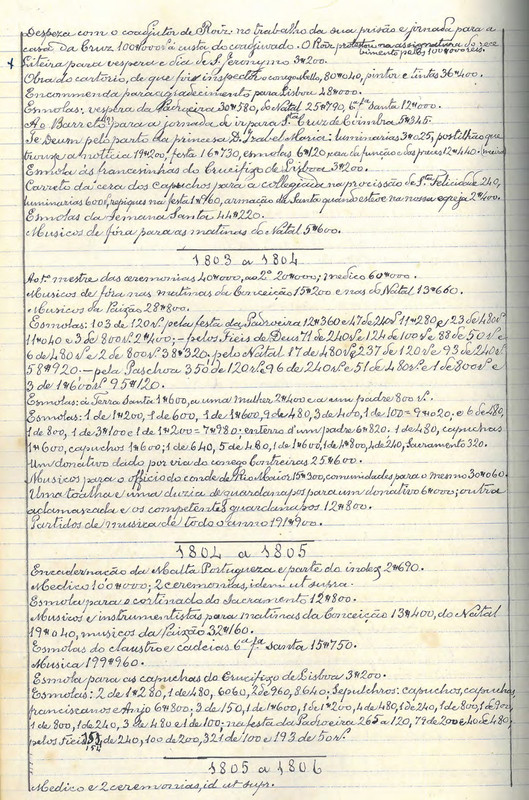 Despeza com o coadjutor de Rôriz: no trabalho da sua prisão e jornada para a
casa da Cruz 100#000rs á custa do coadjuvado. O Roriz protestou na assignatura do rece
bimento pelos 100#000 reis.
Liteira para vespera e dia de S. Jeronymo 3#200.
Obra do cartorio, de que foi inspector o conego tallo, 80#040, pintor e tintas 36#400.
Encommenda para agradecimento para Lisboa 48#000.
Esmolas: vespera da Padroeira 30#580, do Natal 25#790, 6ª fª Santa 12#000.
A e Barreto para a jornada de ir para Stª Cruz de Coimbra 5#345.
Te Deum pelo parto da princeza D. Izabel Maria: luminarias 3#025, postilhão que
trouxe a noticia 19#200, festa 16#730, esmolas 6#120 cera da funcção e dos preces 12#440.
Esmola ás francezinhas do Crucifixo de Lisboa 3#200.
Carreto da cera dos Capuchos para a collegiada na procissão de Stª Felicidade 240,
luminarias 600rs, repiques na festa 1#960, armação da Santa quando esteve na nossa egreja 2#400.
Esmolas da Semana Santa 44#220.
Musicos de fóra para as matinas do Natal 5#600.
1803 a 1804
Ao 1º mestre das ceremonias 40#000, ao 2º 20#000; medico 60#000.
Musicos de fóra nas matinas da Conceição 15#200 e nas do Natal 13#660.
Musicos da Paixão 28#800.
Esmolas: 103 de 120rs pela festa da Padroeira 12#360 e 47 de 240rs 11#280 e 23 de 480rs
11#040 e 3 de 800rs 2#400; — pelos Fieis de Deus 71 de 240rs 124 de 100rs 88 de 50rs
6 de 480rs e 2 de 800rs 38#320, pelo Natal 87 de 480rs 237 de 120rs 93 de 240rs
58#920 — pela Paschoa 350 de 120rs 96 de 240rs 51 de 480rs 1 de 800rs e
3 de 1#600rs 95#120.
Esmolas: á Terra Santa 1#600, a uma mulher 2#400 e a um padre 800rs.
Esmolas: 1 de 1#200, 1 de 600, 1 de 1#600, 9 de 480, 3 de 400, 1 de 100 — 9#020; e 6 de 480,
1 de 800, 1 de 3#100 e 1 de 1#200 — 7#980; enterro d'um padre 6#820. 1 de 480, capuchas
1#600, capuchos 1#600; 1 de 640, 5 de 480, 1 de 1#600, 1 de 4#800, 4 de 240, Sacramento 320.
Um donativo dado por via do conego Contreiras 25#600.
Musicos para o officio do conde de Rio Maior 15#300, comunidades para o mesmo 30#060.
Uma toalha e uma duzia de guardanapos para um donativo 6#000; outra
adamascada e os competentes guardanapos 12#800.
Partidos de musica de todo o anno 191#900.
1804 a 1805
Encadernação da Malta Portugueza e parte do index 2#690.
Medico 100#000; 2 ceremonias, idem ut supra.
Esmola para o cortinado do Sacramento 12#800.
Musicos e instrumentistas para matinas da Conceição 13#400, do Natal
19#040, musicos da Paixão 32#160.
Esmolas do claustro e cadeias 6ª fª Santa 15#750.
Musica 199#960.
Esmola para as capuchas do Crucifixo de Lisboa 3#200.
Esmolas: 2 de 1#280, 1 de 480, 6 de 60, 2 de 960, 8640; Sepulchros: capuchos, capuchas,
franciscanos e Anjo 6#800; 3 de 150, 1 de 1#600, 1 de 1#200, 4 de 480, 1 de 240, 1 de 800, 1 de 900,
1 de 800, 1 de 240, 3 de 480 e 1 de 100; na festa da Padroeira 265 a 120, 79 de 200 e 40 de 480,
pelos Fieis 151 de 240, 100 de 200, 321 de 100 e 193 de 50rs.
154
1805 a 1806
Medico e 2 ceremonias, id ut sup.